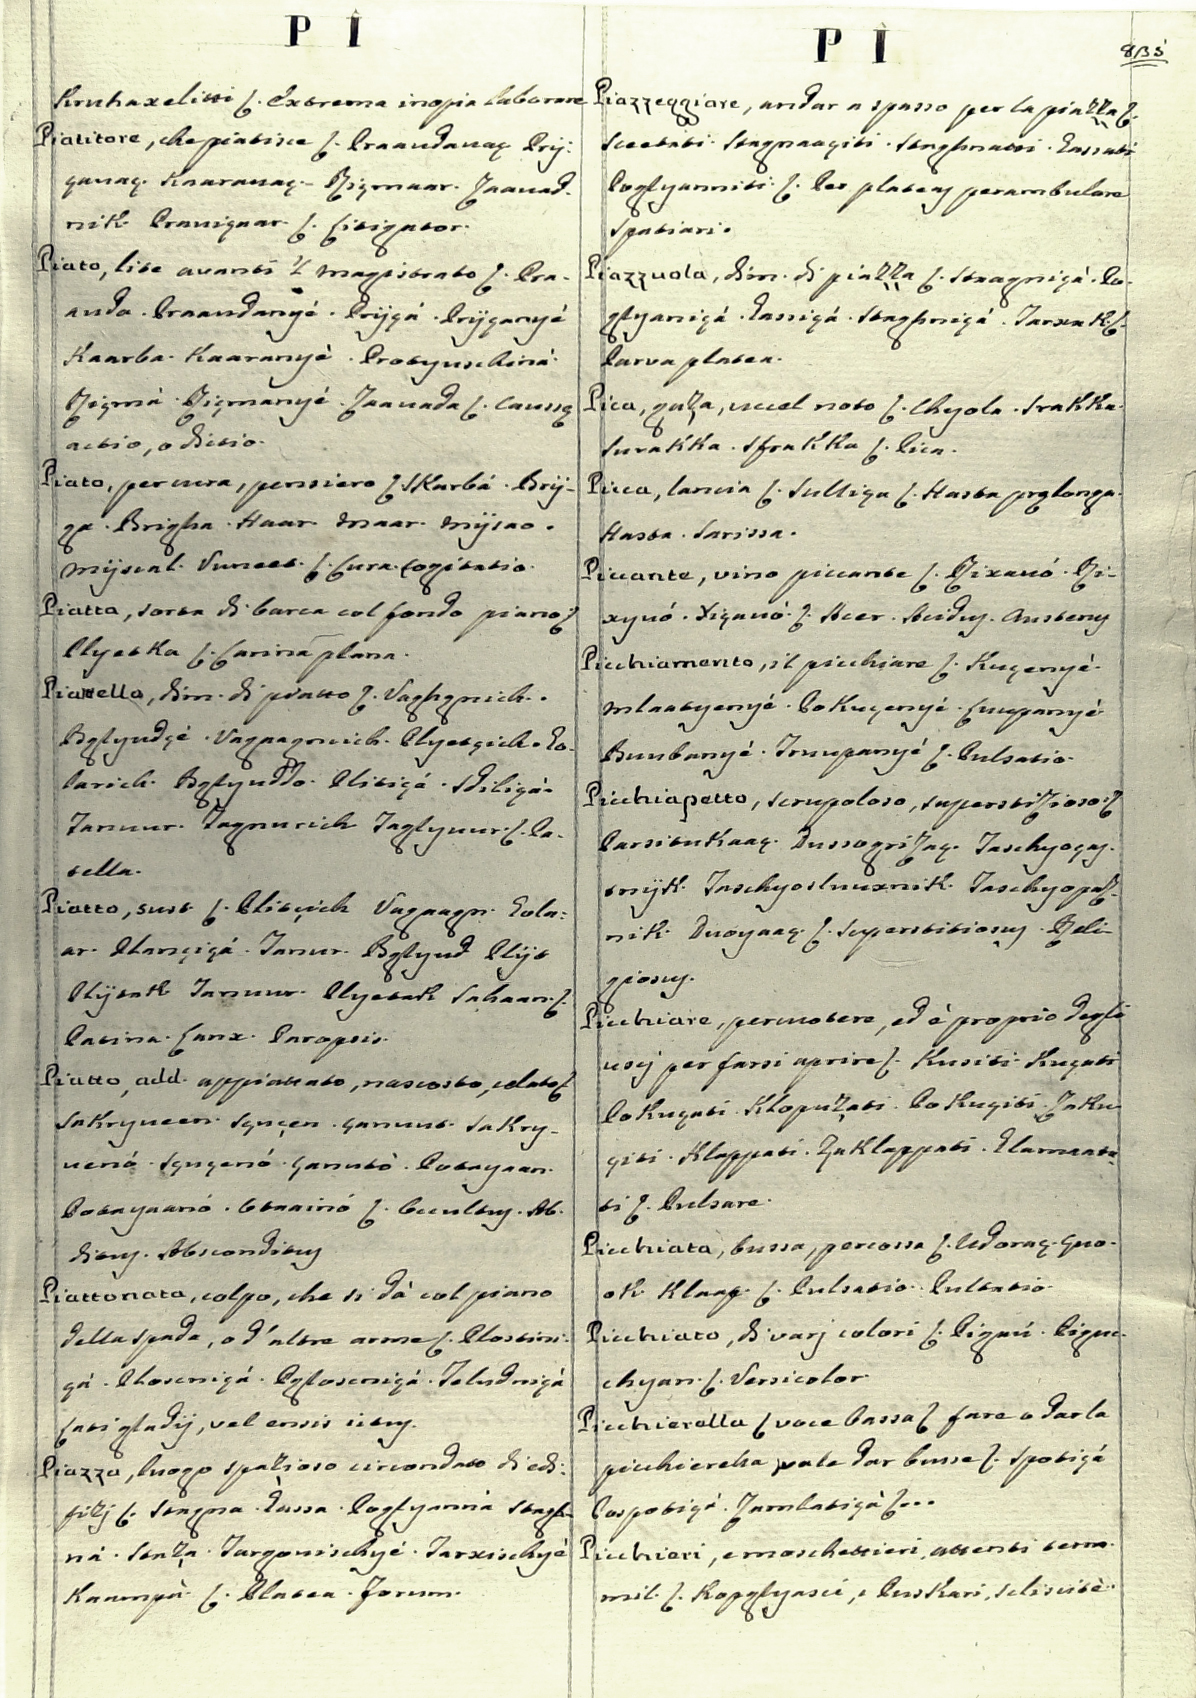 P I
Kruhaxelitti ς. Extrema inopia laborare
Piatitore, che piatisce ς. Praandavaç Prij-
çavaç. Kaaravaç. Rizmaar. Zaavad-
nik. Pravicaar. ς. Litigator.
Piato, lite avanti 'l magistrato ς. Pra-
auda. Praaudanyé. Prijçá. Prijçanyé
Kaarba. Kaaranyé. Protyuschiná.
Rizmá. Rizmanyé. Zaavada ς. Caussa
actio, o dictio.
Piato, per cura, pensiero ς. Skarbá. Brij-
ga. Brigha. Haar. Maar. Mijsao.
Mijscal. Svncet. ς. Cura. Cogitatio.
Piatta, sorta di barca col fondo piano ς
Plyetka ς. Carina plana.
Piattello, dim. di piatto ς. Vaghgnich.
Bglyudçé. Vagnagnich. Plyetçich. Zo-
larich. Bglyuddo. Plitiçá. Sdiliçá.
Tanuur. Tagnurich Taglyuur. ς. Pa-
tella.
Piatto, sust ς. Plitçich Vagnagn. Zola-
ar. Plançiçá. Tanur. Bglyud Plijt
Plijtak Tanuur. Plyetak Sahaan. ς.
Patina. Lanx. Paropsis.
Piatto, add. appiattato, nascosto, celato ς
Sakryueen. Sçuçen. Ganuut. Sakry-
uenó. Sçuçenó. Ganutó. Potayaan.
Potayaanó. Otaainó ς. Occultus. Ab-
ditus. Absconditus
Piattonata, colpo, che si dà col piano
della spada, o d'altre arme ς. Plostimi-
çá. Ploscniçá. Pgloscniçá. Teludniçá
Lati gladij, vel ensis ictus.
Piazza, luogo spazioso circondato di edi-
fizj ς. Stagna. Lassa. Poglyanná Stagh-
ná. Stazza. Targovischyé. Tarxischyé
Kaampù. ς. Platea. Forum.
P I
Piazzeggiare, andar a spasso per la piazza ς.
Sceetati. Stagnaagiti. Staghnatti. Lassati
Poglyanniti. ς. Per plateas perambulare
Spatiari.
Piazzuola, dim. di piazza ς. Stragniçá. Po-
glyaniçá. Lassiçá. Staghniçá. Tarxak. ς.
Parva platea.
Pica, gazza, uccel noto ς. Chyola. Srakka.
Surakka. Sfrakka ς. Pica.
Picca, lancia ς. Sulliça ς. Hasta prælonga.
Hasta. Sarissa.
Piccante, vino piccante ς. Rixavó. Ri-
xyuó. Xigavó. ς. Acer. Acidus. Austerus
Picchiamento, il picchiare ς. Kuçenyé.
Mlaatyenyé. Pokuçenyé. Luupanyé
Buubanyé. Truupanyé ς. Pulsatio.
Picchiapetto, scrupoloso, superstizioso ς
Parsitukaaç. Dussogrizaç. Taschyogaj-
tnijk. Taschyosluuxnik. Taschyopaz-
nik. Dvoyaaç. ς. Superstitiosus. Reli-
giosus.
Picchiare, percuotere, ed è proprio degli
uscj per farsi aprire ς. Kusiti. Kuçati
Pokuçati. Klopuzati. Pokuçiti. Zaku-
çiti. Klappati. Zaklappati. Zlamaata-
ti ς. Pulsare.
Picchiata, bussa, percossa ς. Udoraç. Quo-
ok Klaap ς. Pulsatio. Pultatio.
Picchiato, di varj colori ς. Pignú. Pignu-
chyan. ς. Versicolor
Picchierella ς voce bassa ς fare o dar la
picchierella vale dar busse ς. Spotiçá
Pospotiçá. Zamlatiçá ς...
Picchieri, e moschettieri, attenti term.
mil. ς. Kopglyasci, i Puskari, sliscitè.